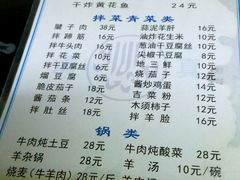 干炸黄花鱼 24元
拌菜青菜类
腱子肉 38元 蒜泥羊肝 16元
拌蹄筋 16元 油炸花生米 10元
拌牛头肉 16元 葱油干豆腐丝 10元
拌花菜 10元 尖椒干豆腐 10元
拌干豆腐丝 8元 地三鲜 12元
熘豆腐 8元 烧茄子 12元
脆皮肠 10元 酱炒鸡蛋 14元
酱茄条 12元 吉菜粉 12元
拌肚丝 18元 木须柿子 12元
拌羊脸 16元
锅类
牛肉炖土豆 28元 牛肉炖酸菜 28元
羊杂锅 28元 羊汤 10元/碗
烧麦(牛羊肉) 28元/斤